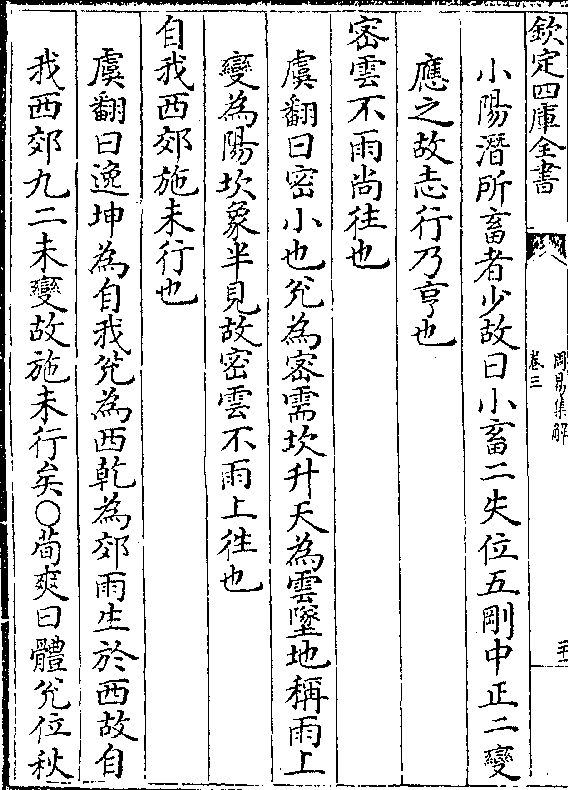 欽定四庫全書
周易集解
卷三
小陽潛所畜者少故曰小畜二失位五剛中正二變
應之故志行乃亨也
密雲不雨尚往也
虞翻曰密小也兊為密需坎升天為雲墜地稱雨上
變為陽坎象半見故密雲不雨上徃也
自我西郊施未行也
虞翻曰逸坤為自我兊為西乾為郊雨生於西故自
我西郊九二未變故施未行矣○荀爽曰體兊位秋